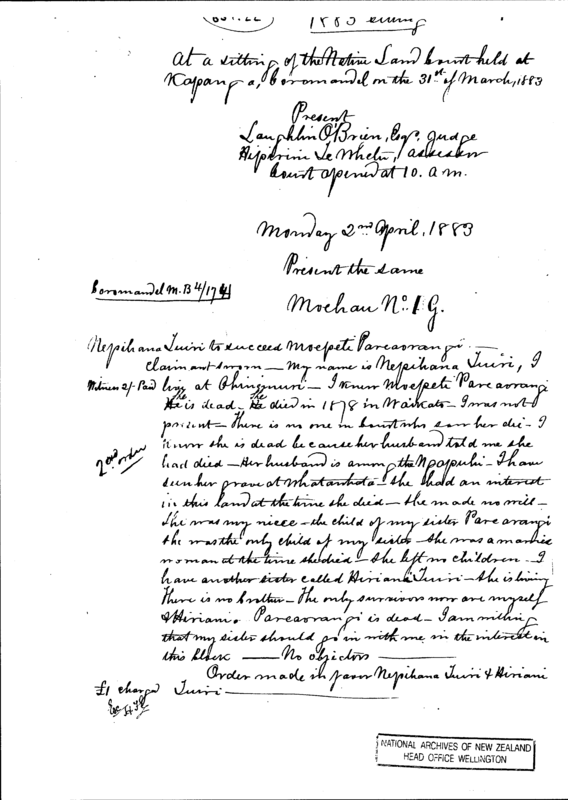 1883
At a sitting of the Native Land Court held at
Kapanga, Coromandel on the 31st of March, 1883
Present
Laughlin O'Brien, Esqr. Judge
Hipirini Te Whetu, Assessor
Court opened at 10. a.m.
Monday 2nd April, 1883
Present the same
Coromandel M.B 4/174
Moehau No. 1 G.
Nepihana Tuiri to succeed Moepeti Pareaorangi. —
Claimant sworn — My name is Nepihana Tuiri, I
Witness 2/- Paid live at Ohinemuri — I knew Moepeti Pareaorangi
She is dead — She died in 1878 in Waikato — I was not
present — There is no one in Court who saw her die — I
2nd order
know she is dead because her husband told me she
had died — Her husband is among the Ngapuhi — I have
seen her grave at — She had an interest
in this land at the time she died — She made no will —
She was my niece — the child of my sister Pareaorangi
she was the only child of my sister — She was a married
woman at the time she died — She left no children — I
have another sister called Hiriani Tuiri — She is living
There is no brother — The only survivors now are myself
& Hiriani. Pareaorangi is dead — I am willing
that my sister should go in with me in the interest in
this block — No objectors —
Order made in favor Nepihana Tuiri & Hiriani
£1 charged Tuiri —
NATIONAL ARCHIVES OF NEW ZEALAND
HEAD OFFICE WELLINGTON